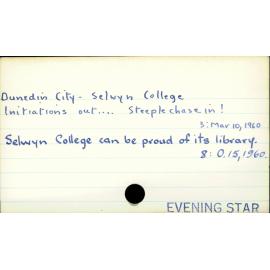 Dunedin City - Selwyn College
Initiations out.... Steeplechase in!
3: Mar 10, 1960
Selwyn College can be proud of its library.
8: O.15, 1960.
EVENING STAR